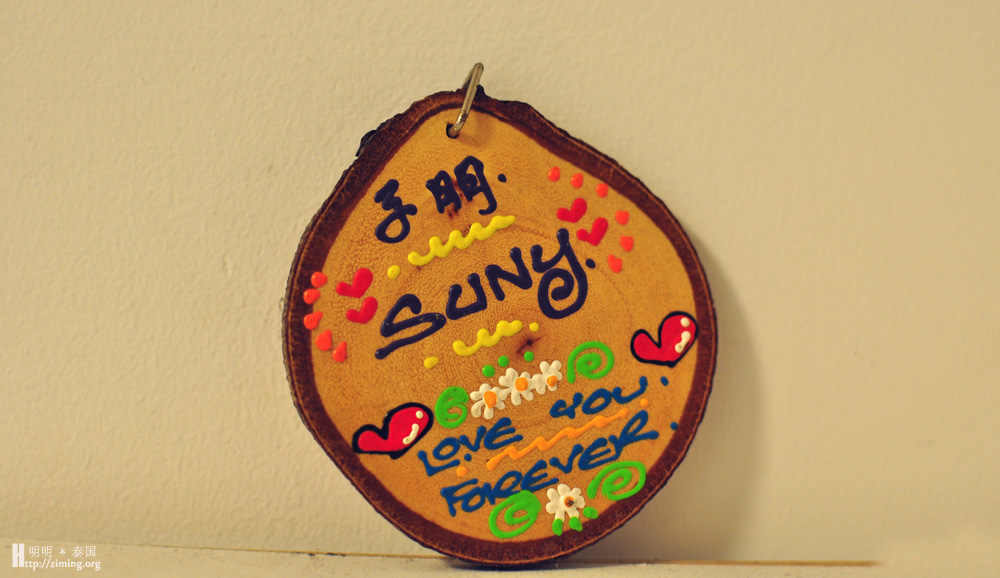 子明.
SUNY.
LOVE YOU.
FOREVER.
明明 * 泰国
Http://ziming.org